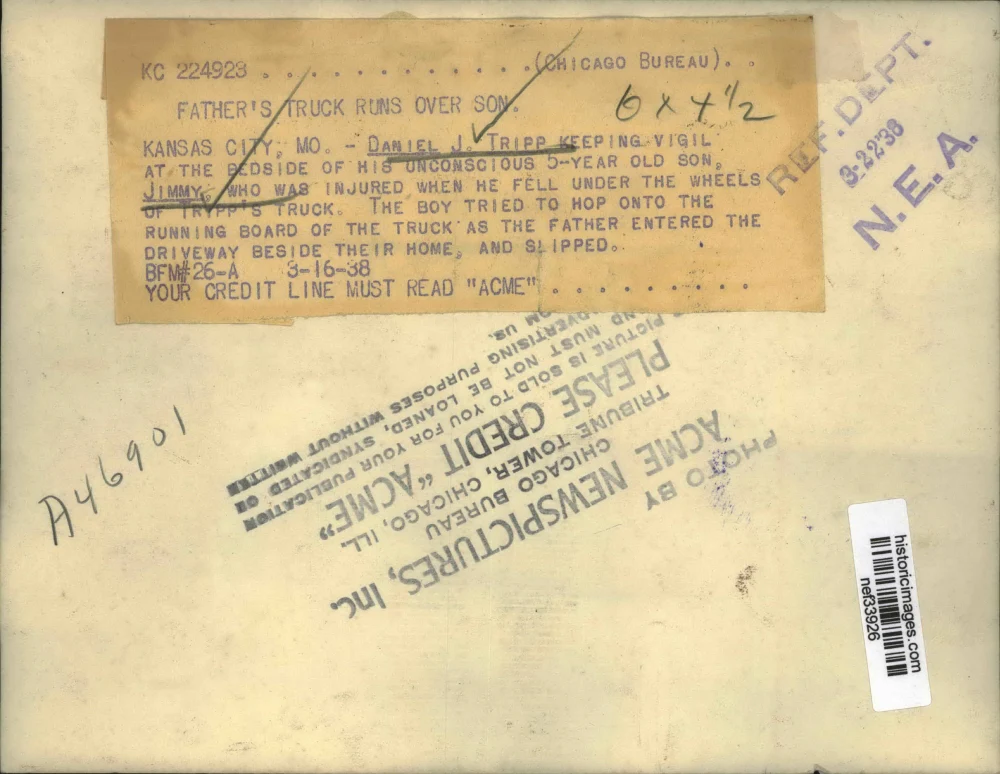 KC 224923 . . . . . . . . . . . . .(CHICAGO BUREAU). .
FATHER'S TRUCK RUNS OVER SON.
6 x 4 1/2
KANSAS CITY, MO. - DANIEL J. TRIPP KEEPING VIGIL
AT THE BEDSIDE OF HIS UNCONSCIOUS 5-YEAR OLD SON,
JIMMY, WHO WAS INJURED WHEN HE FELL UNDER THE WHEELS
OF TRIPP'S TRUCK. THE BOY TRIED TO HOP ONTO THE
RUNNING BOARD OF THE TRUCK AS THE FATHER ENTERED THE
DRIVEWAY BESIDE THEIR HOME, AND SLIPPED.
BFM#26-A 3-16-38
YOUR CREDIT LINE MUST READ "ACME" . . . . . . . . .
REF. DEPT.
3-22'38
N.E.A.
A46901
PHOTO BY
ACME NEWSPICTURES, Inc.
CHICAGO BUREAU
TRIBUNE TOWER, CHICAGO, ILL.
PLEASE CREDIT "ACME"
PICTURE IS SOLD TO YOU FOR YOUR PUBLICATION
MUST NOT BE LOANED, SYNDICATED OR
ADVERTISING PURPOSES WITHOUT WRITTEN
US.
historicimages.com
nef33926